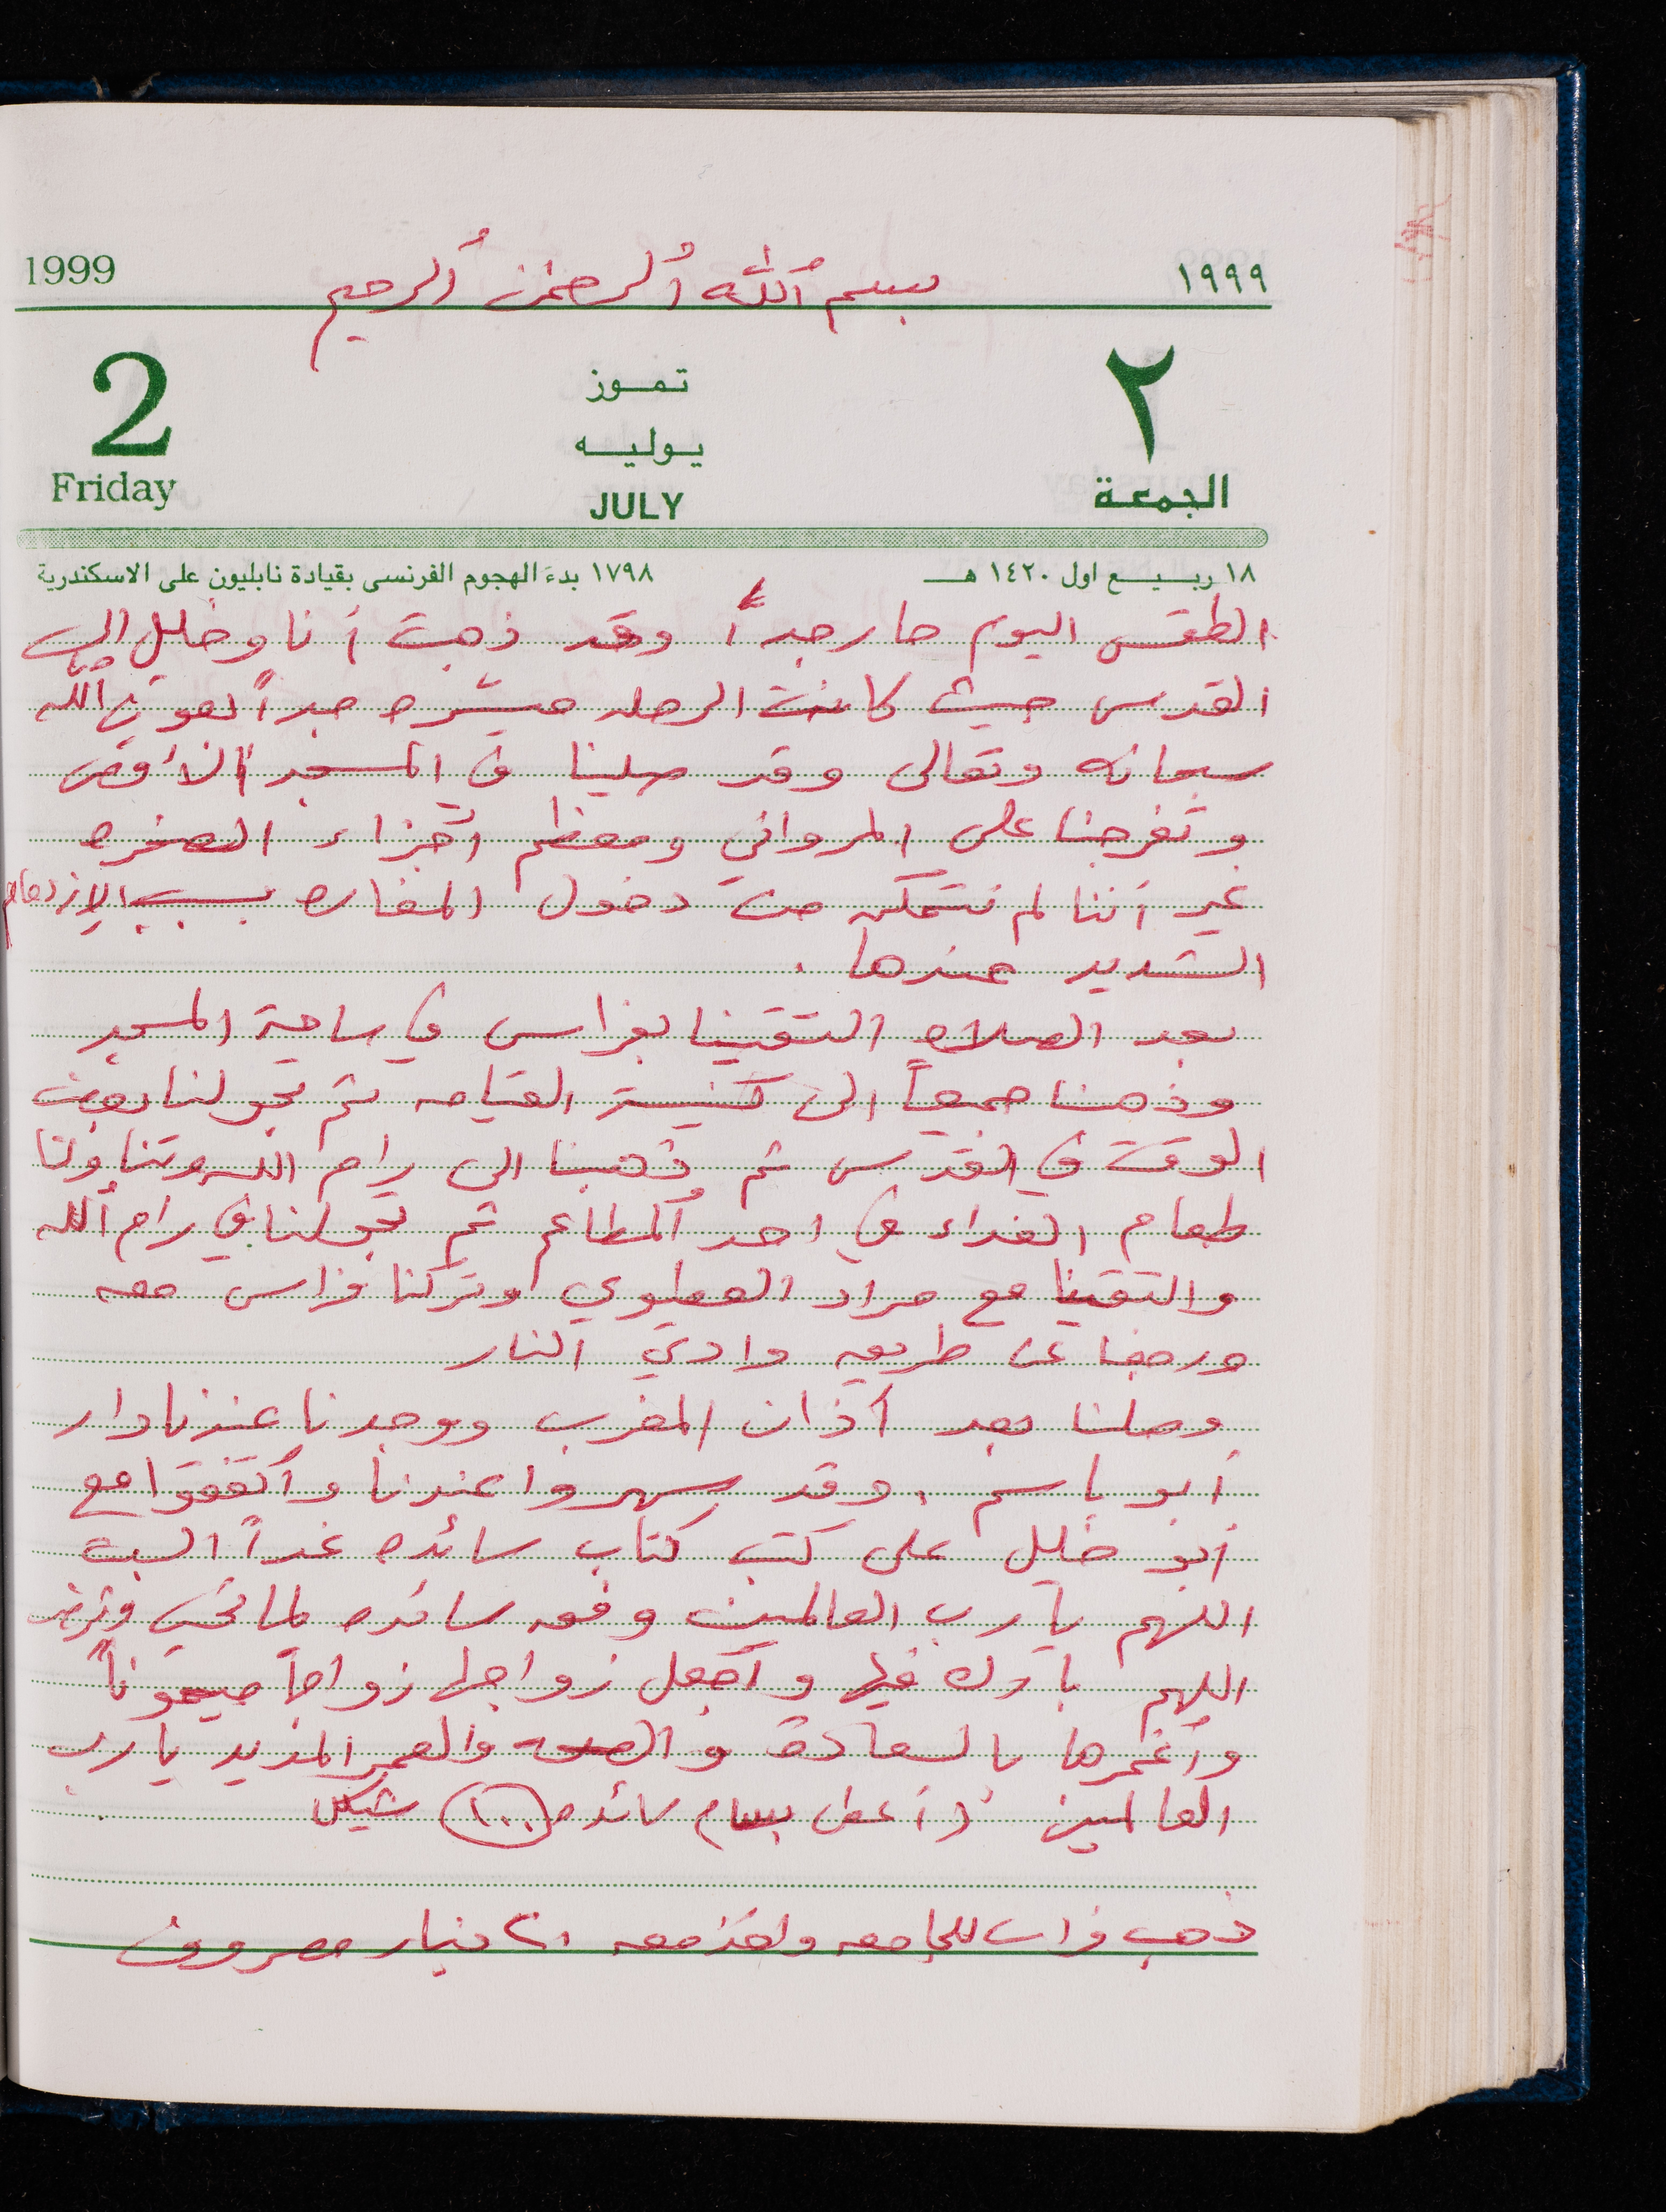 1999 بسم الله الرحمن الرحيم ١٩٩٩
2 تموز ٢
يوليه
Friday JULY الجمعة
١٨ ربيع اول ١٤٢٠ هـ ١٧٩٨ بدء الهجوم الفرنسى بقيادة نابليون على الاسكندرية
الطقس اليوم حار جداً وقد ذهبت أنا وخليل إلى
القدس حيث كانت الرحله ميسره جداً بعون الله
سبحانه وتعالى وقد صلينا في المسجد الأقصى
وتفرجنا على المرواني ومعظم أجزاء الصخره
غير أننا لم نتمكن من دخول المغاره بسبب الإزدحام
الشديد عندها .
بعد الصلاه التقينا بفراس في ساحة المسجد
وذهبنا جميعاً الى كنيسة القيامه ثم تجولنا بعض
الوقت في القدس ثم ذهبنا الى رام الله وتناولنا
طعام الغداء في احد المطاعم ثم تجولنا في رام الله
والتقينا مع مراد وتركنا فراس معه
ورجعنا عن طريق وادي النار
وصلنا بعد أذان المغرب ووجدنا عندنا دار
أبو باسم . وقد سهروا عندنا وأتفقوا مع
أبو خليل على كتب كتاب سائده غداً السبت
اللهم يا رب العالمين وفق سائده لما تحب وترضى
اللهم بارك فيها وأجعل زواجها زواجاً ميموناً
وأغمرها بالسعادة و الصحه والعمر المديد يا رب
العالمين ( أعطى بسام سائده ١٠٠ شيكل
ذهب فراس للجامعه وأخذ معه ٢٠ دينار مصروف